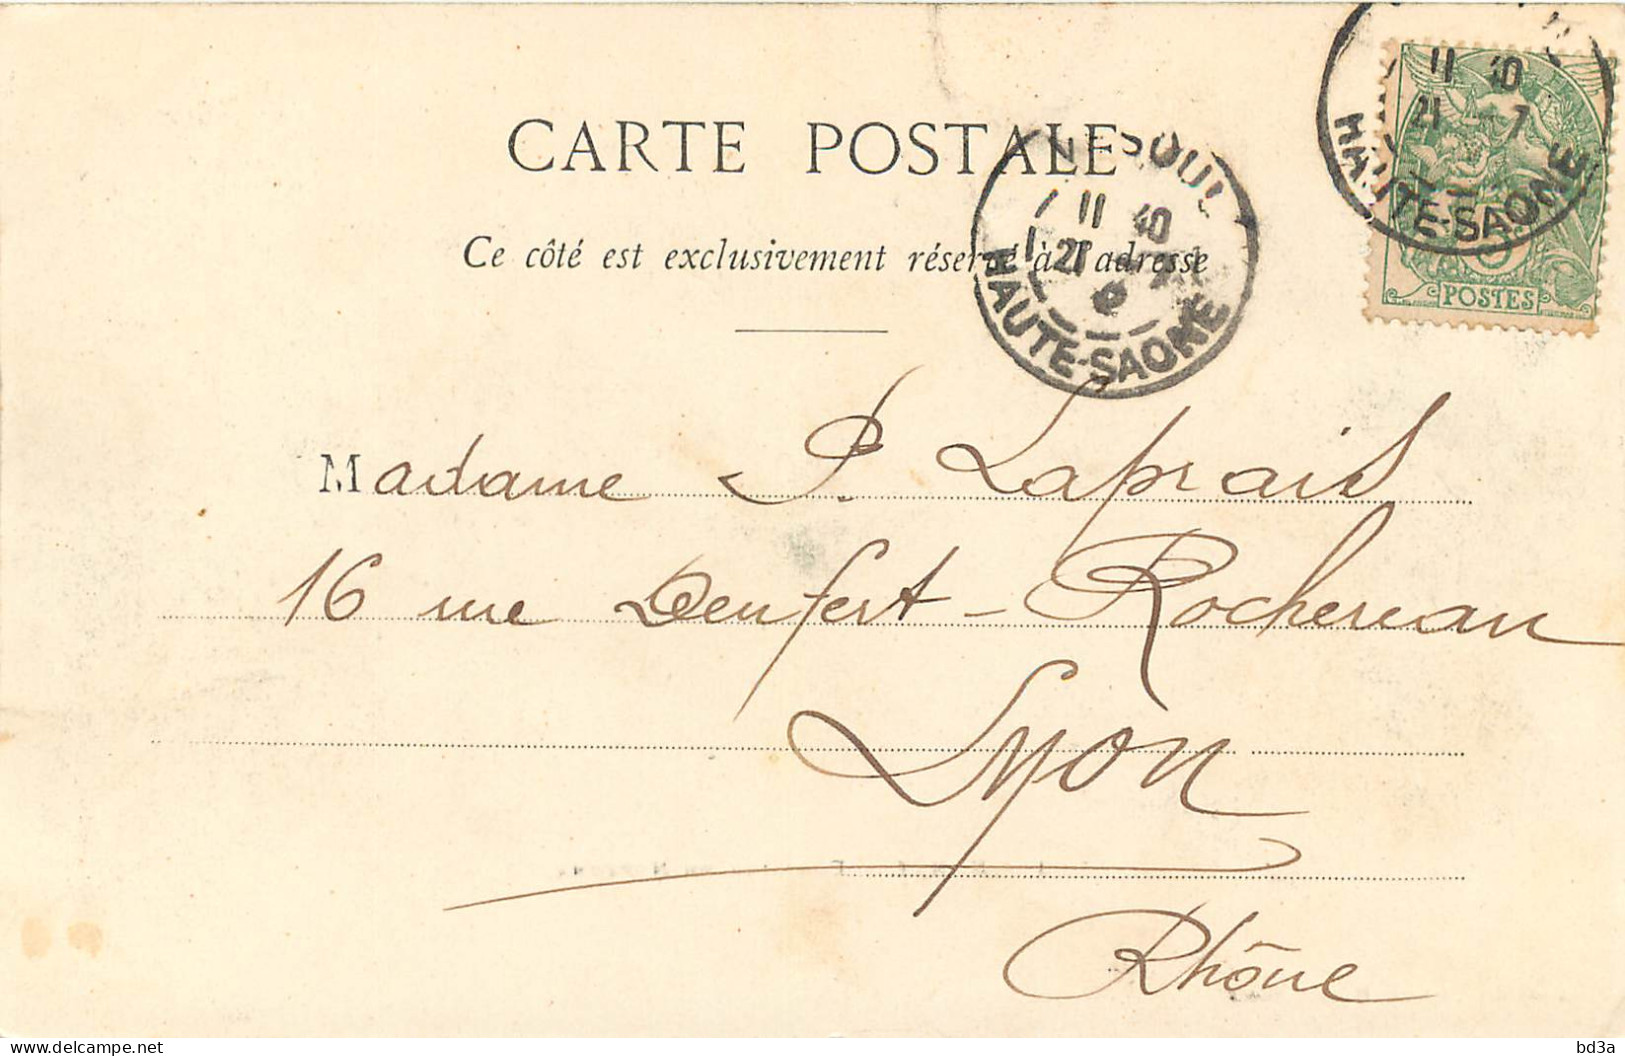 CARTE POSTALE
Ce côté est exclusivement réservé à l'adresse
11 40
21 7
HAUTE-SAONE
11 40
21
HAUTE-SAONE
5
POSTES
Madame P. Laprais
16 rue Denfert-Rochereau
Lyon
Rhône
delcampe.net
bd3a